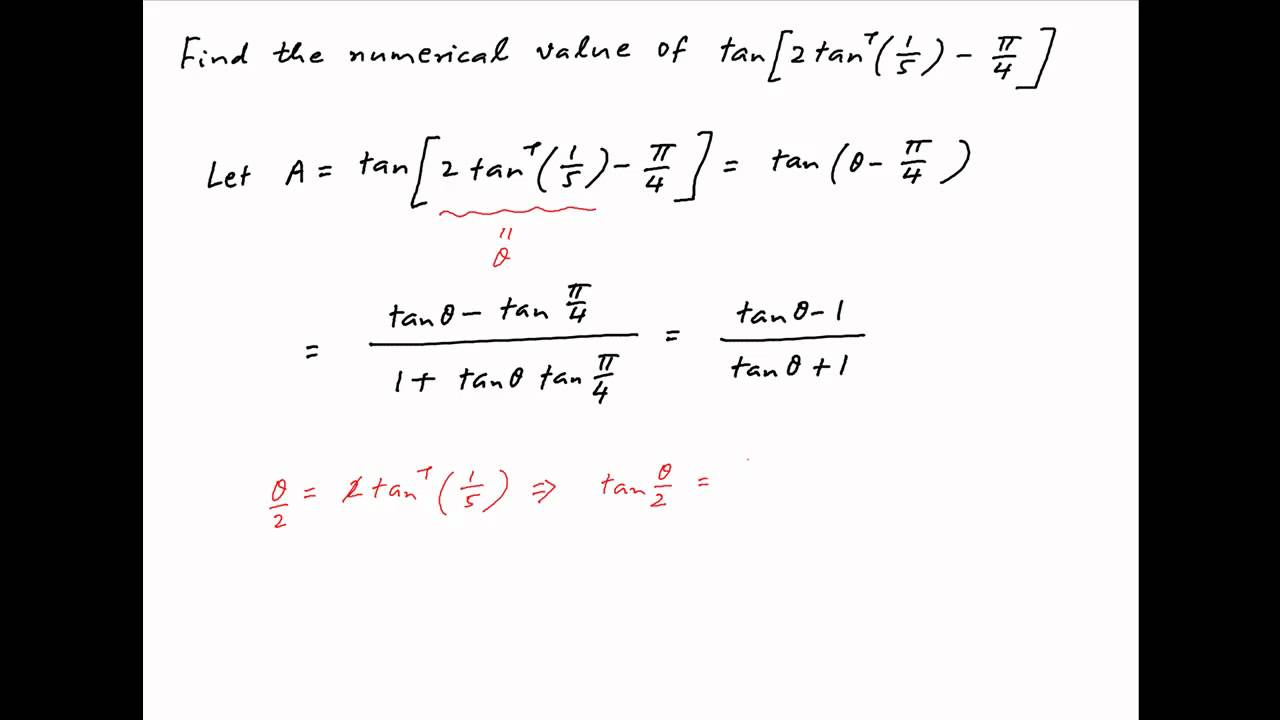 Find the numerical value of tan[2 tan⁻¹(1/5) − π/4]
Let A = tan[2 tan⁻¹(1/5) − π/4] = tan(θ − π/4)
"
θ
= (tanθ − tan π/4)/(1 + tanθ tan π/4) = (tanθ − 1)/(tanθ + 1)
θ/2 = 2 tan⁻¹(1/5) ⇒ tan θ/2 =